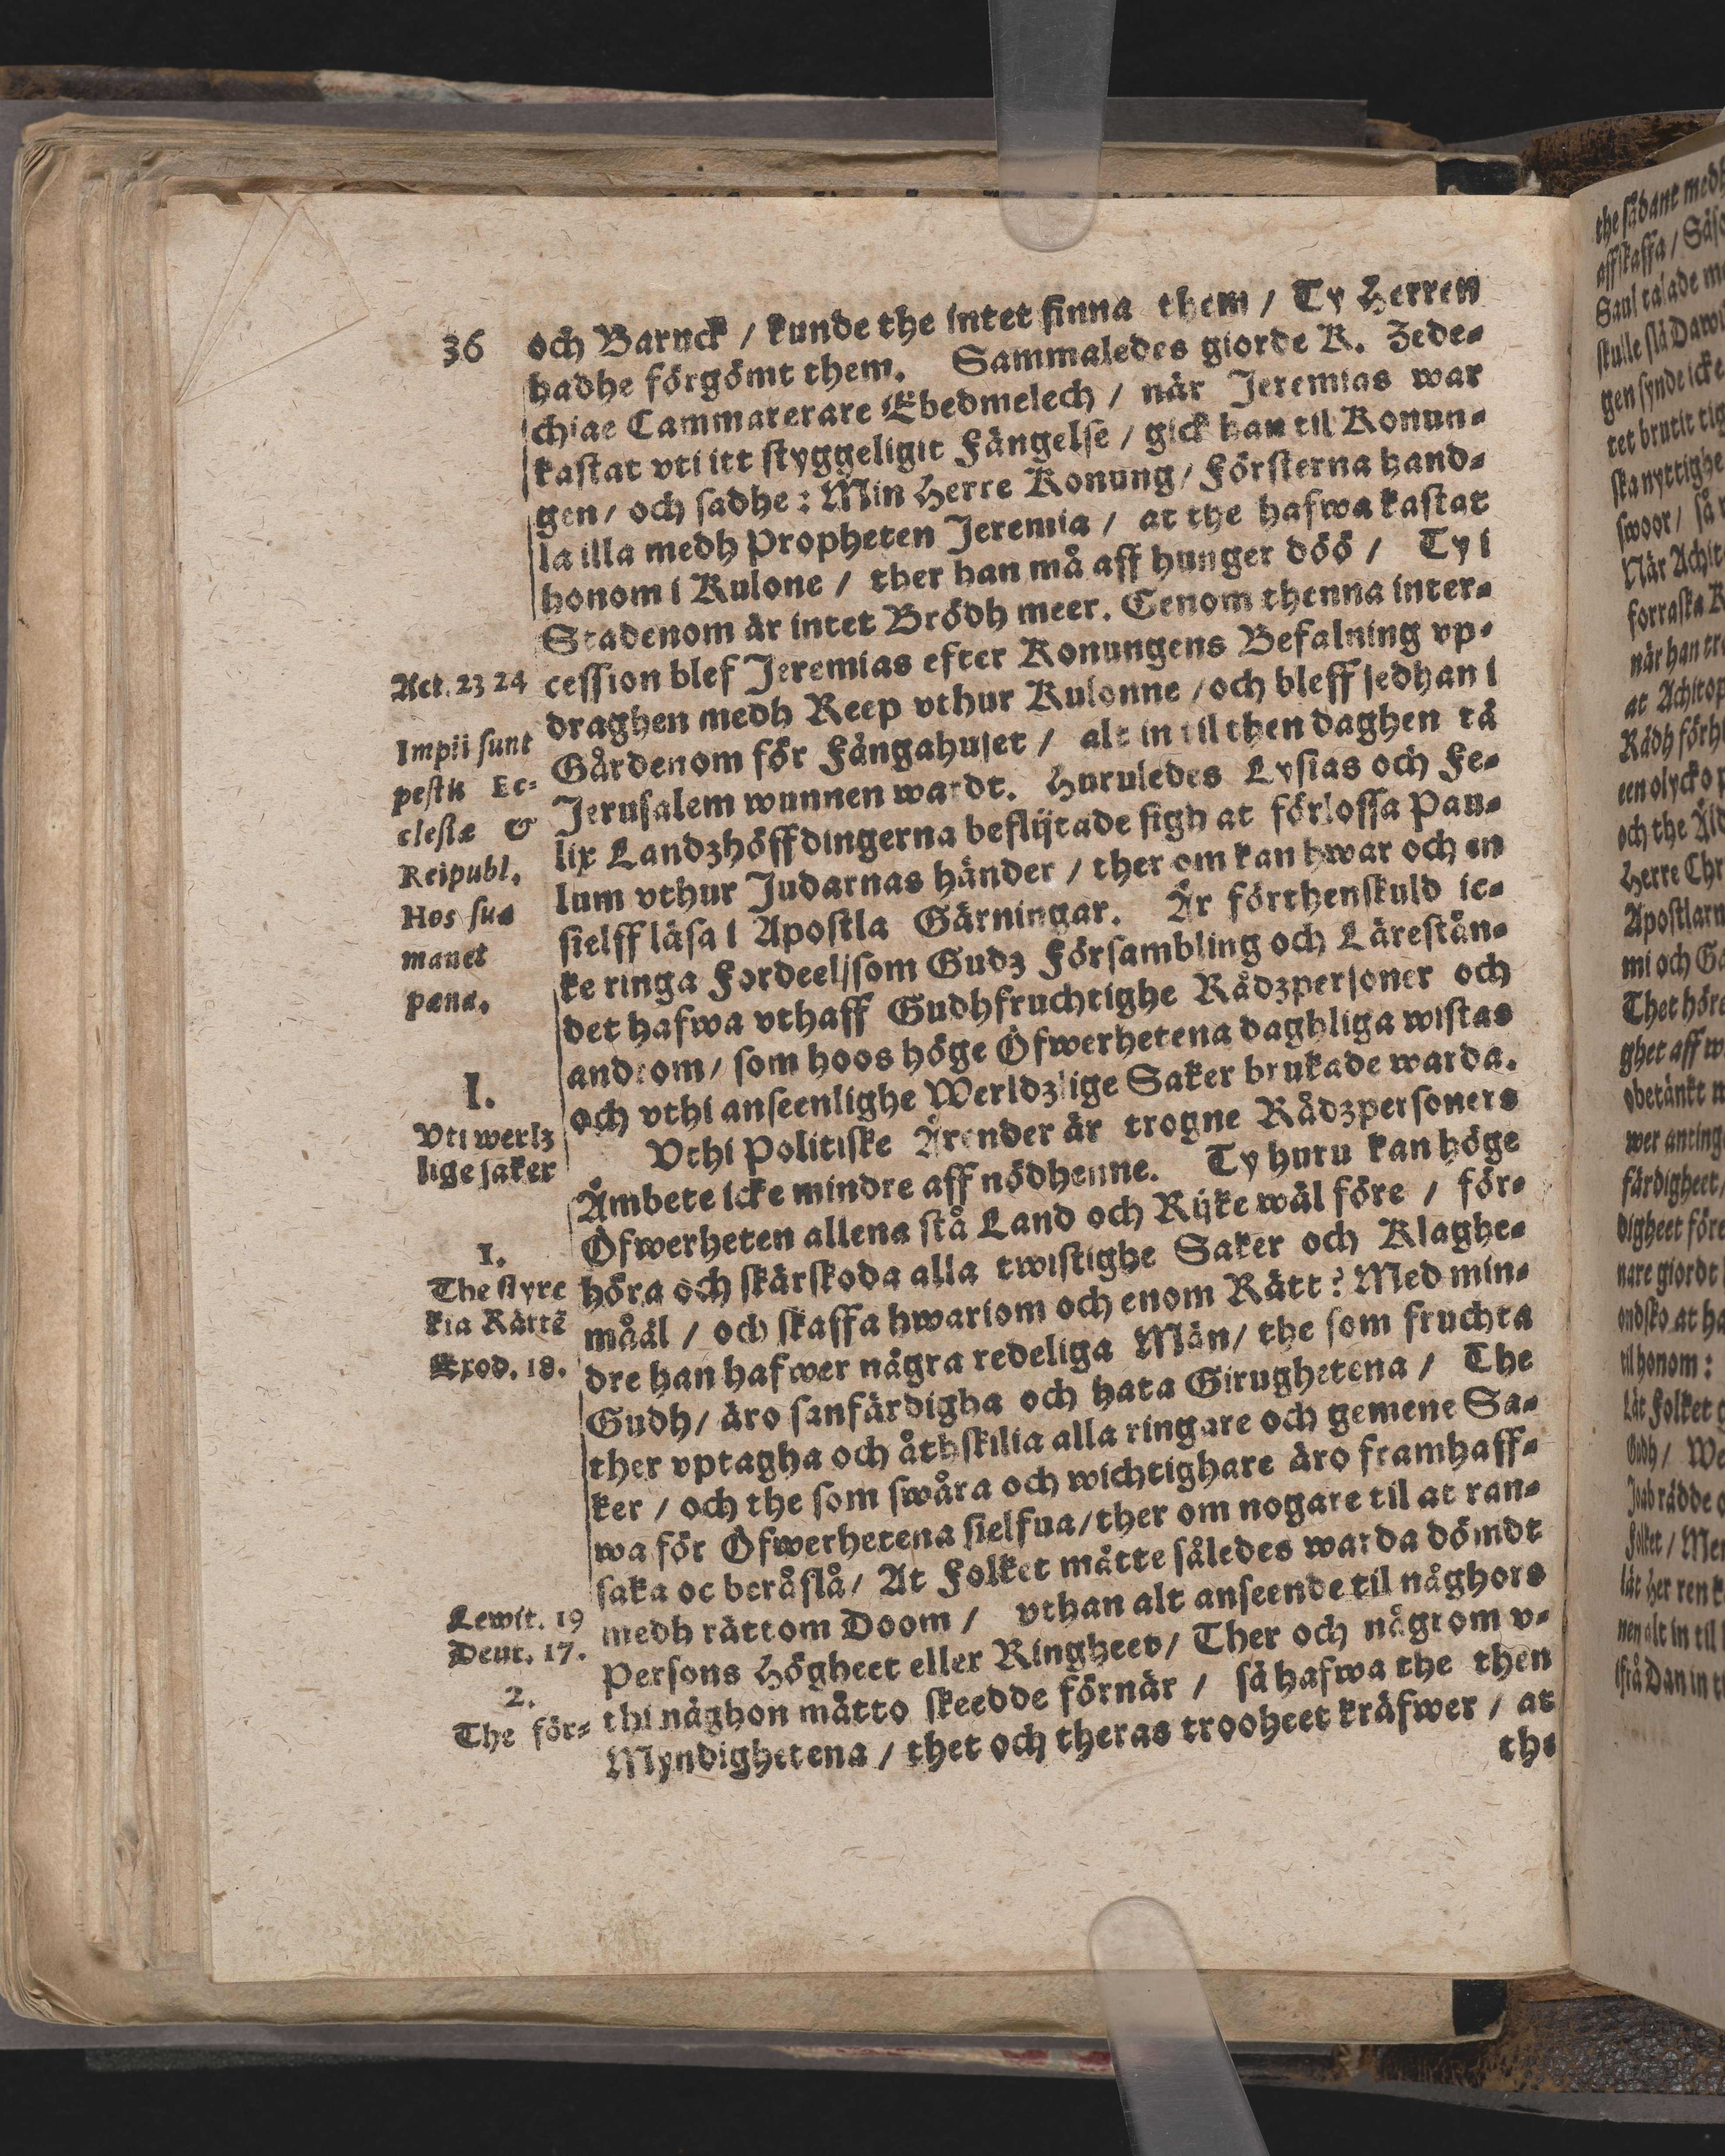 36
och Baruck / kunde the intet finna them / Ty Herren
hadhe förgömt them. Sammaledes giorde K. Zede-
chiae Cammarerare Ebedmelech / när Jeremias war
kastat vti itt styggeligit Fängelse / gick han til Konun-
gen / och sadhe : Min Herre Konung / Försterna hand-
la illa medh Propheten Jeremia / at the hafwa kastat
honom i Kulone / ther han må aff hunger döö / Ty i
Stadenom är intet Brödh meer. Genom thenna inter-
cession blef Jeremias efter Konungens Befalning vp-
draghen medh Reep vthur Kulonne / och bleff sedhan i
Gårdenom för Fångahuset / alt in til then daghen tå
Jerusalem wunnen wardt. Huruledes Lysias och Fe-
lix Landzhöffdingerna beflijtade sigh at förlossa Pau-
lum vthur Judarnas händer / ther om kan hwar och en
sielff läsa i Apostla Gärningar. Är förthenskuld ic-
ke ringa Fordeel / som Gudz Försambling och Lärestån-
det hafwa vthaff Gudhfruchtighe Rådzpersoner och
androm / som hoos höge Öfwerhetena daghliga wistas
och vthi anseenlighe Werldzlige Saker brukade warda.
Vthi Politiske Ärender är trogne Rådzpersoners
Åmbete icke mindre aff nödhenne. Ty huru kan höge
Öfwerheten allena stå Land och Rijke wäl före / för-
höra och skärskoda alla twistighe Saker och Klaghe-
måål / och skaffa hwariom och enom Rätt ? Med min-
dre han hafwer några redeliga Män / the som fruchta
Gudh / äro sanfärdigha och hata Girughetena / The
ther vptagha och åthskilia alla ringare och gemene Sa-
ker / och the som swåra och wichtighare äro framhaff-
wa för Öfwerhetena sielfua / ther om nogare til at ran-
saka oc beråslå / At Folket måtte således warda dömdt
medh rättom Doom / vthan alt anseende til någhors
Persons Högheet eller Ringheet / Ther och någrom v-
thi någhon måtto skeedde förnär / så hafwa the then
Myndighetena / thet och theras trooheet kräfwer / at
the
Act. 23 24
Impii sunt
pestis Ec-
clesiæ &
Reipubl.
Hos sua
manet
pæna.
I.
Vti werlz
lige saker
1.
The styre
kia Rättē
Exod. 18.
Lewit. 19
Deut. 17.
2.
The för-
the sådant medh
affskaffa /
Saul talade
skulle slå
gen synde icke
tet brutit
ska nyttighe
swoor / så
När
forraska
när han
at
Rådh
een olycko
och the
Herre
Apostlarn
mi och
Thet
ghet aff
obetänkt
wer
färdigheet
digheet före
nare giordt
ondsko at
til honom :
Låt Folket
Gudh /
Joab rådde
Folket /
lät Herren
nen alt in til
ifrå Dan in